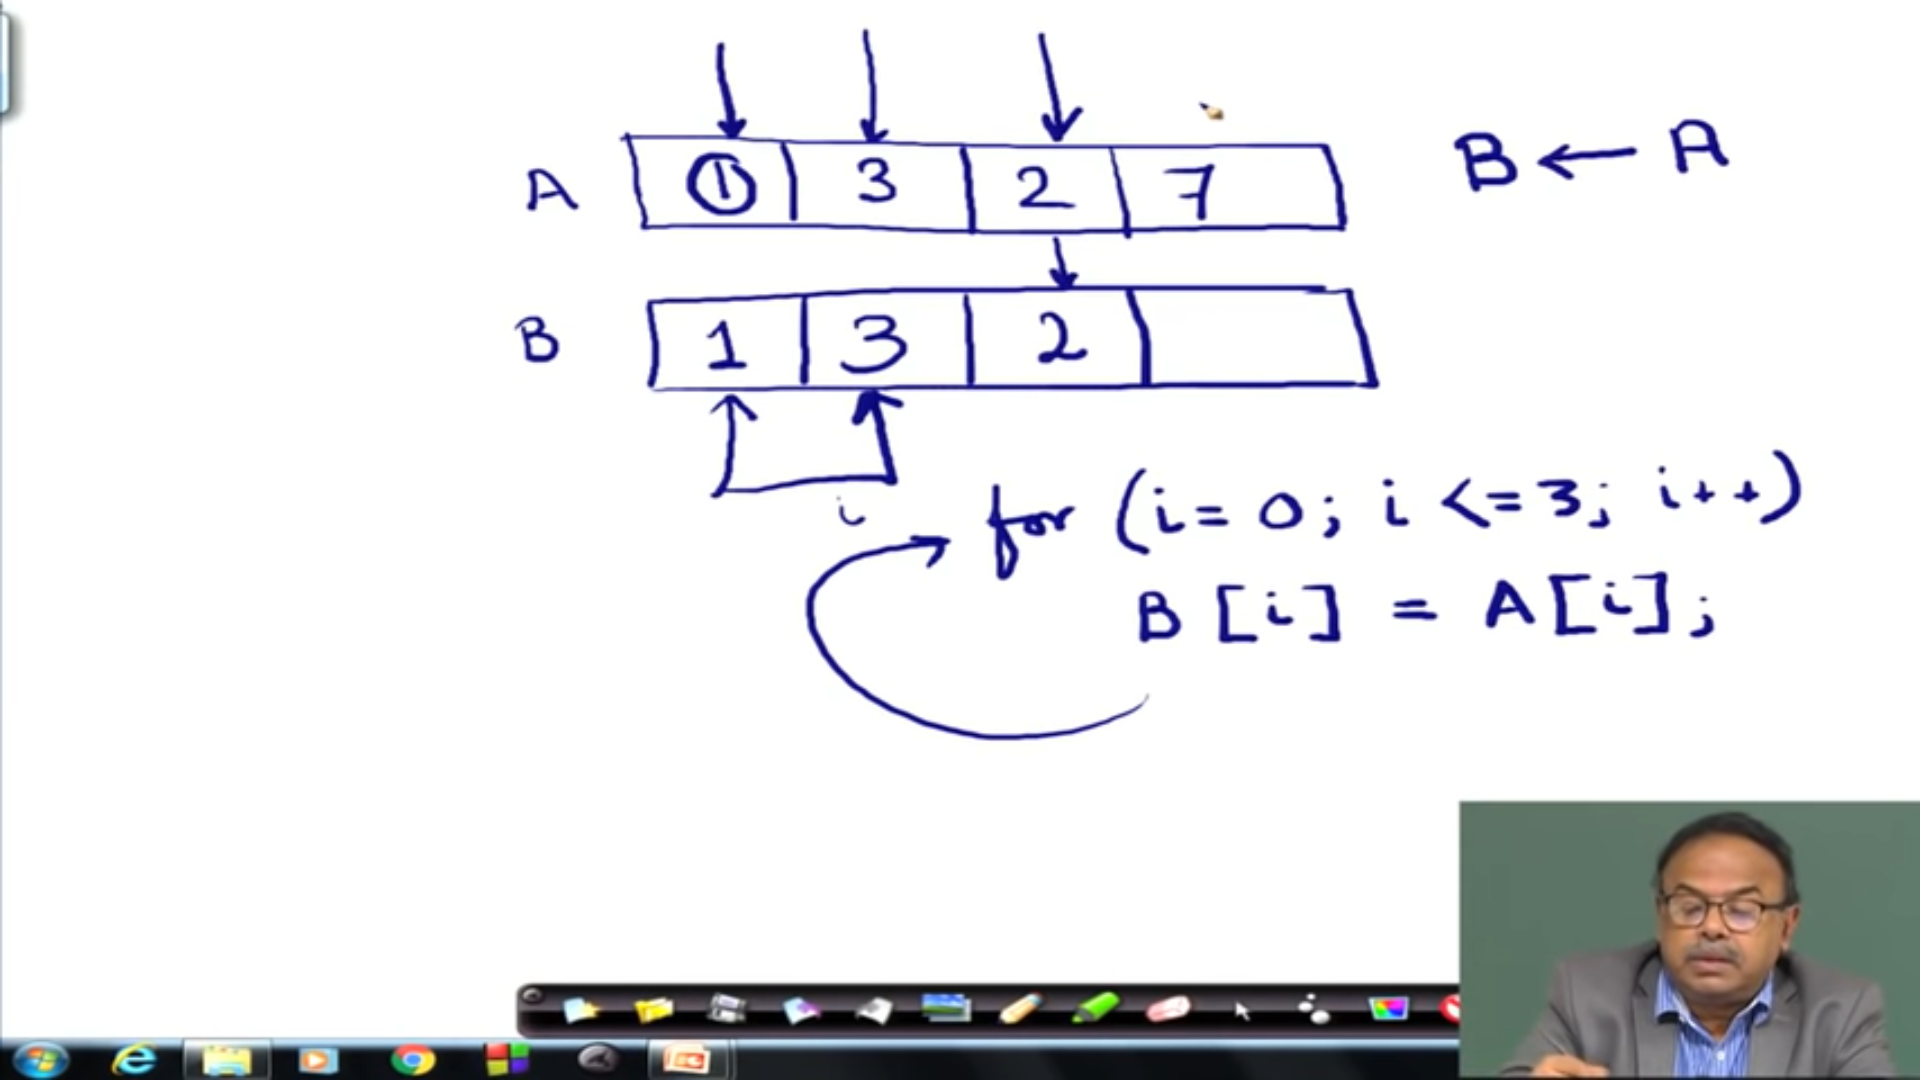 A 1 3 2 7 B ← A
B 1 3 2
i
for (i = 0; i <= 3; i++)
B [i] = A [i];